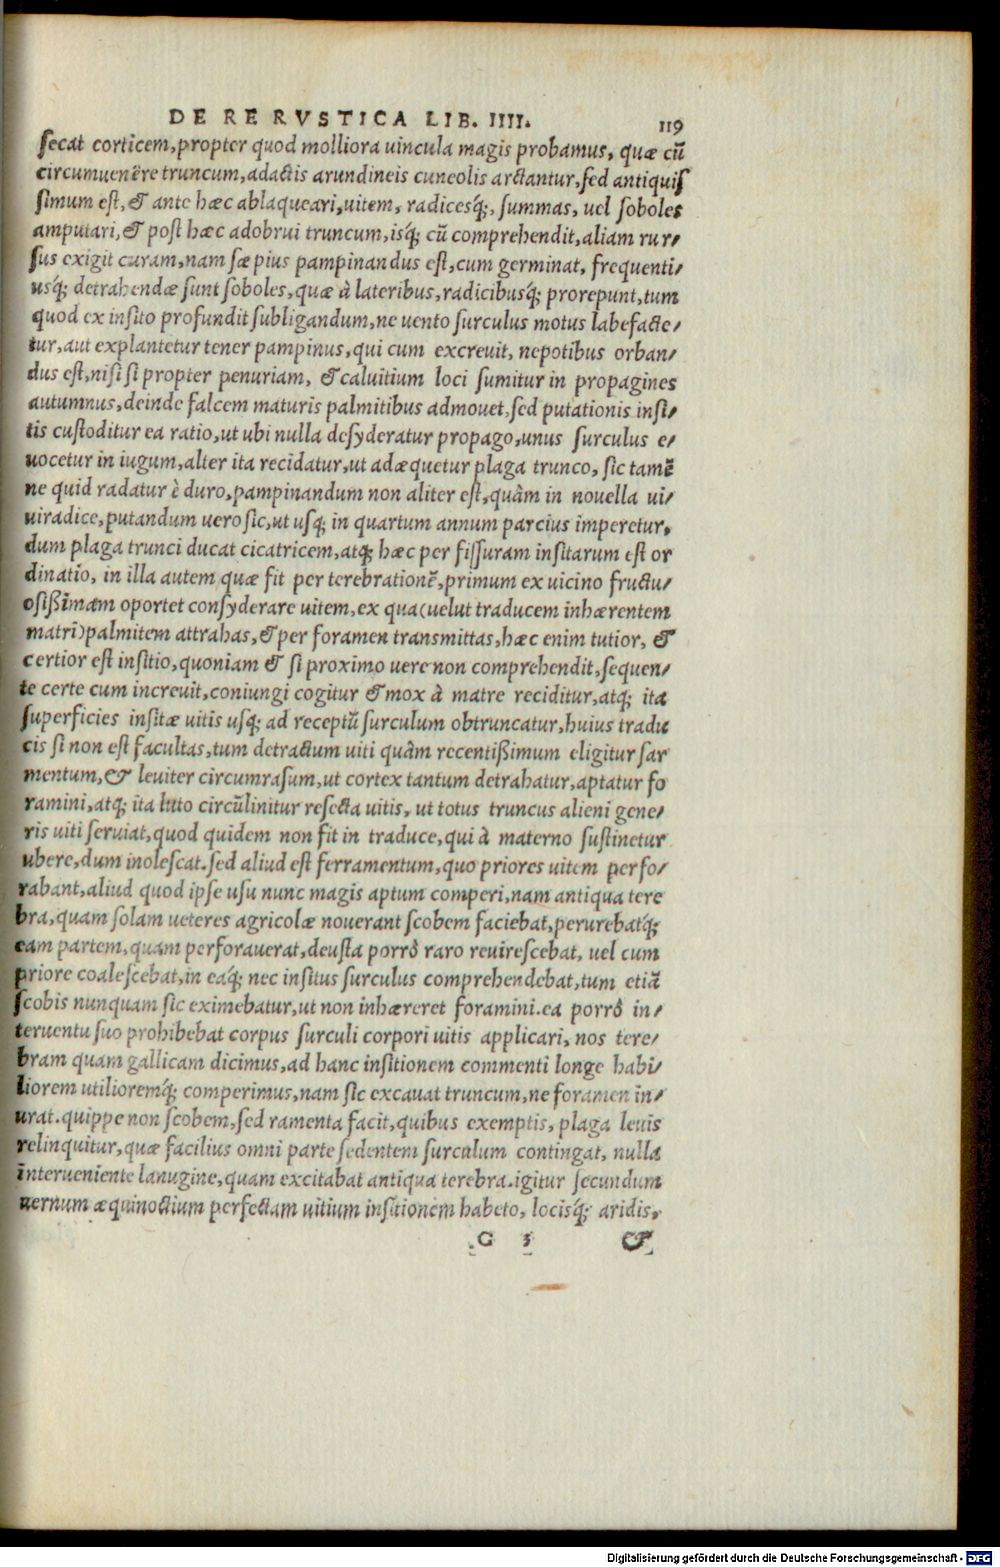 DE RE RVSTICA LIB. IIII. 119
ſecat corticem,propter quod molliora uincula magis probamus, quæ cũ
circumuenẽre truncum,adactis arundineis cuneolis arctantur,ſed antiquiſ
ſimum eſt,& ante hæc ablaqueari,uitem, radicesq́;, ſummas, uel ſoboles
amputari,& poſt hæc adobrui truncum,isq́; cũ comprehendit,aliam rur/
ſus exigit curam,nam ſæpius pampinandus eſt,cum germinat, frequenti/
usq́; detrahendæ ſunt ſoboles,quæ à lateribus,radicibusq́; prorepunt,tum
quod ex inſito profundit ſubligandum,ne uento ſurculus motus labefacte/
tur,aut explantetur tener pampinus,qui cum excreuit, nepotibus orban/
dus eſt,niſi ſi propter penuriam, & caluitium loci ſumitur in propagines
autumnus,deinde falcem maturis palmitibus admouet,ſed putationis inſi/
tis cuſtoditur ea ratio,ut ubi nulla deſyderatur propago,unus ſurculus e/
uocetur in iugum,alter ita recidatur,ut adæquetur plaga trunco, ſic tamẽ
ne quid radatur è duro,pampinandum non aliter eſt,quàm in nouella ui/
uiradice,putandum uero ſic,ut uſq; in quartum annum parcius imperetur,
dum plaga trunci ducat cicatricem,atq; hæc per fiſſuram inſitarum eſt or
dinatio, in illa autem quæ fit per terebrationẽ,primum ex uicino fructu/
oſiſſimam oportet conſyderare uitem,ex qua(uelut traducem inhærentem
matri)palmitem attrahas,& per foramen transmittas,hæc enim tutior, &
certior eſt inſitio,quoniam & ſi proximo uere non comprehendit,ſequen/
te certe cum increuit,coniungi cogitur & mox à matre reciditur,atq; ita
ſuperficies inſitæ uitis uſq; ad receptũ ſurculum obtruncatur,huius tradu
cis ſi non eſt facultas,tum detractum uiti quàm recentiſſimum eligitur ſar
mentum,& leuiter circumraſum,ut cortex tantum detrahatur,aptatur fo
ramini,atq; ita luto circũlinitur reſecta uitis, ut totus truncus alieni gene/
ris uiti ſeruiat,quod quidem non fit in traduce,qui à materno ſuſtinetur
ubere,dum inoleſcat.ſed aliud eſt ferramentum,quo priores uitem perfo/
rabant,aliud quod ipſe uſu nunc magis aptum comperi,nam antiqua tere
bra,quam ſolam ueteres agricolæ nouerant ſcobem faciebat,perurebatq́;
eam partem,quam perforauerat,deuſta porrò raro reuireſcebat, uel cum
priore coaleſcebat,in eaq́; nec inſitus ſurculus comprehendebat,tum etiã
ſcobis nunquam ſic eximebatur,ut non inhæreret foramini.ea porrò in/
teruentu ſuo prohibebat corpus ſurculi corpori uitis applicari, nos tere/
bram quam gallicam dicimus,ad hanc inſitionem commenti longe habi/
liorem utilioremq́; comperimus,nam ſic excauat truncum,ne foramen in/
urat.quippe non ſcobem,ſed ramenta facit,quibus exemptis, plaga leuis
relinquitur,quæ facilius omni parte ſedentem ſurculum contingat, nulla
interueniente lanugine,quam excitabat antiqua terebra.igitur ſecundum
uernum æquinoctium perfectam uitium inſitionem habeto, locisq́; aridis,
G 3 &
Digitalisierung gefördert durch die Deutsche Forschungsgemeinschaft - DFG